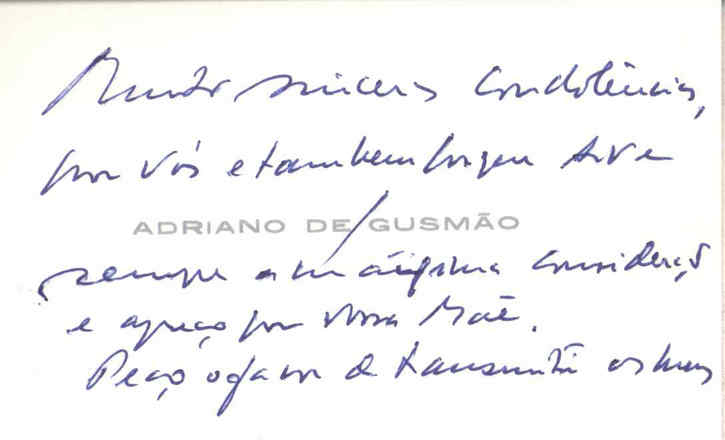 Muito sinceras condolências,
por vós e também porque tive
ADRIANO DE GUSMÃO
sempre a máxima consideraç
e apreço por vossa Mãe.
Peço o favor de transmitir os meus